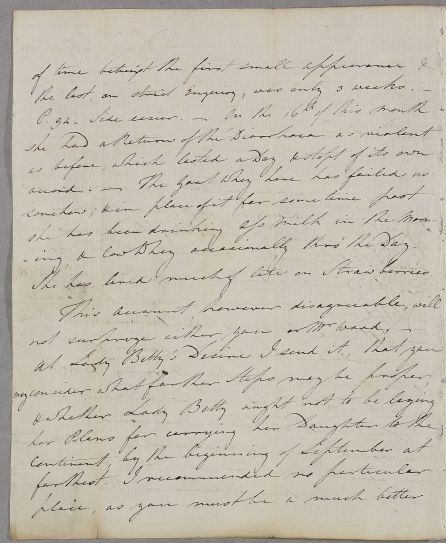 of time betwixt the first small appearance &
the last, on strict Enquiry, was only 3 weeks. —
P. 92. Side easier. — On the 16th of this month
she had a Return of the Diarrhoea as violent
as before, which lasted a Day & stopt of its own
accord. — The Goat Whey here has failed us
somehow; & in place of it for some time past
she has been drinking Ass Milk in the Morn
-ing, & Cow Whey occasionally thro' the Day.
She has lived much of late on Strawberries
This account, however disagreeable, will
not surprize either you or Mr Wood, —
At Lady Betty's Desire I send it, that you
may consider what farther Steps may be proper,
& whether Lady Betty ought not to be laying
her Plans for carrying her Daughter to the
Continent, by the beginning of September at
farthest. I recommended no particular
place, as you must be a much better